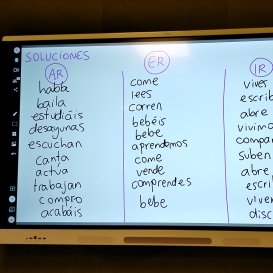 SOLUCIONES
AR
habla
baila
estudiáis
desayunas
escuchan
canta
actúa
trabajan
compro
acabáis
ER
come
lees
corren
bebéis
bebe
aprendemos
come
vende
comprendes
bebe
IR
vives
escrib
abre
vivimo
compar
suben
abre
escri
vive
disc